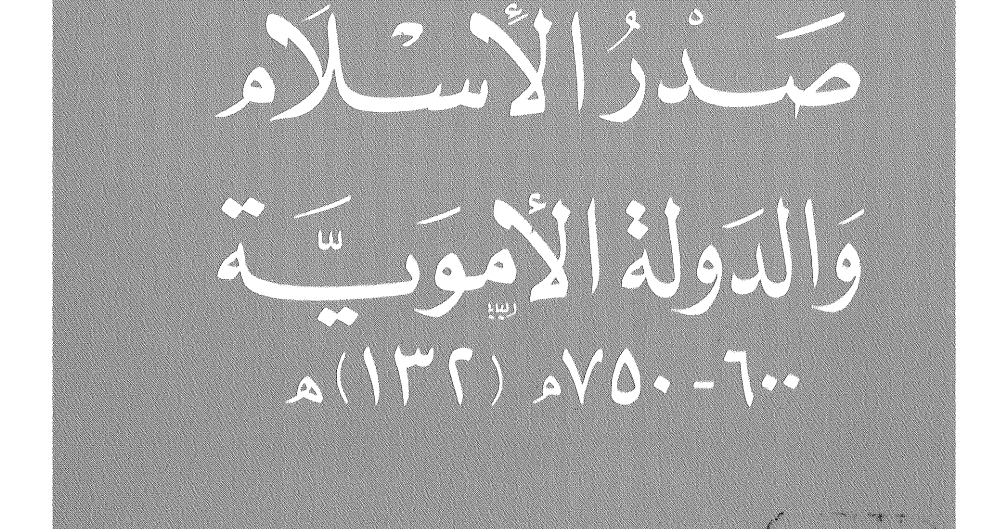 صَدْرُ الأِسْلَام
وَالدَولة الأُمَوَيَّة
٦٠٠-٧٥٠م (١٣٢)ه